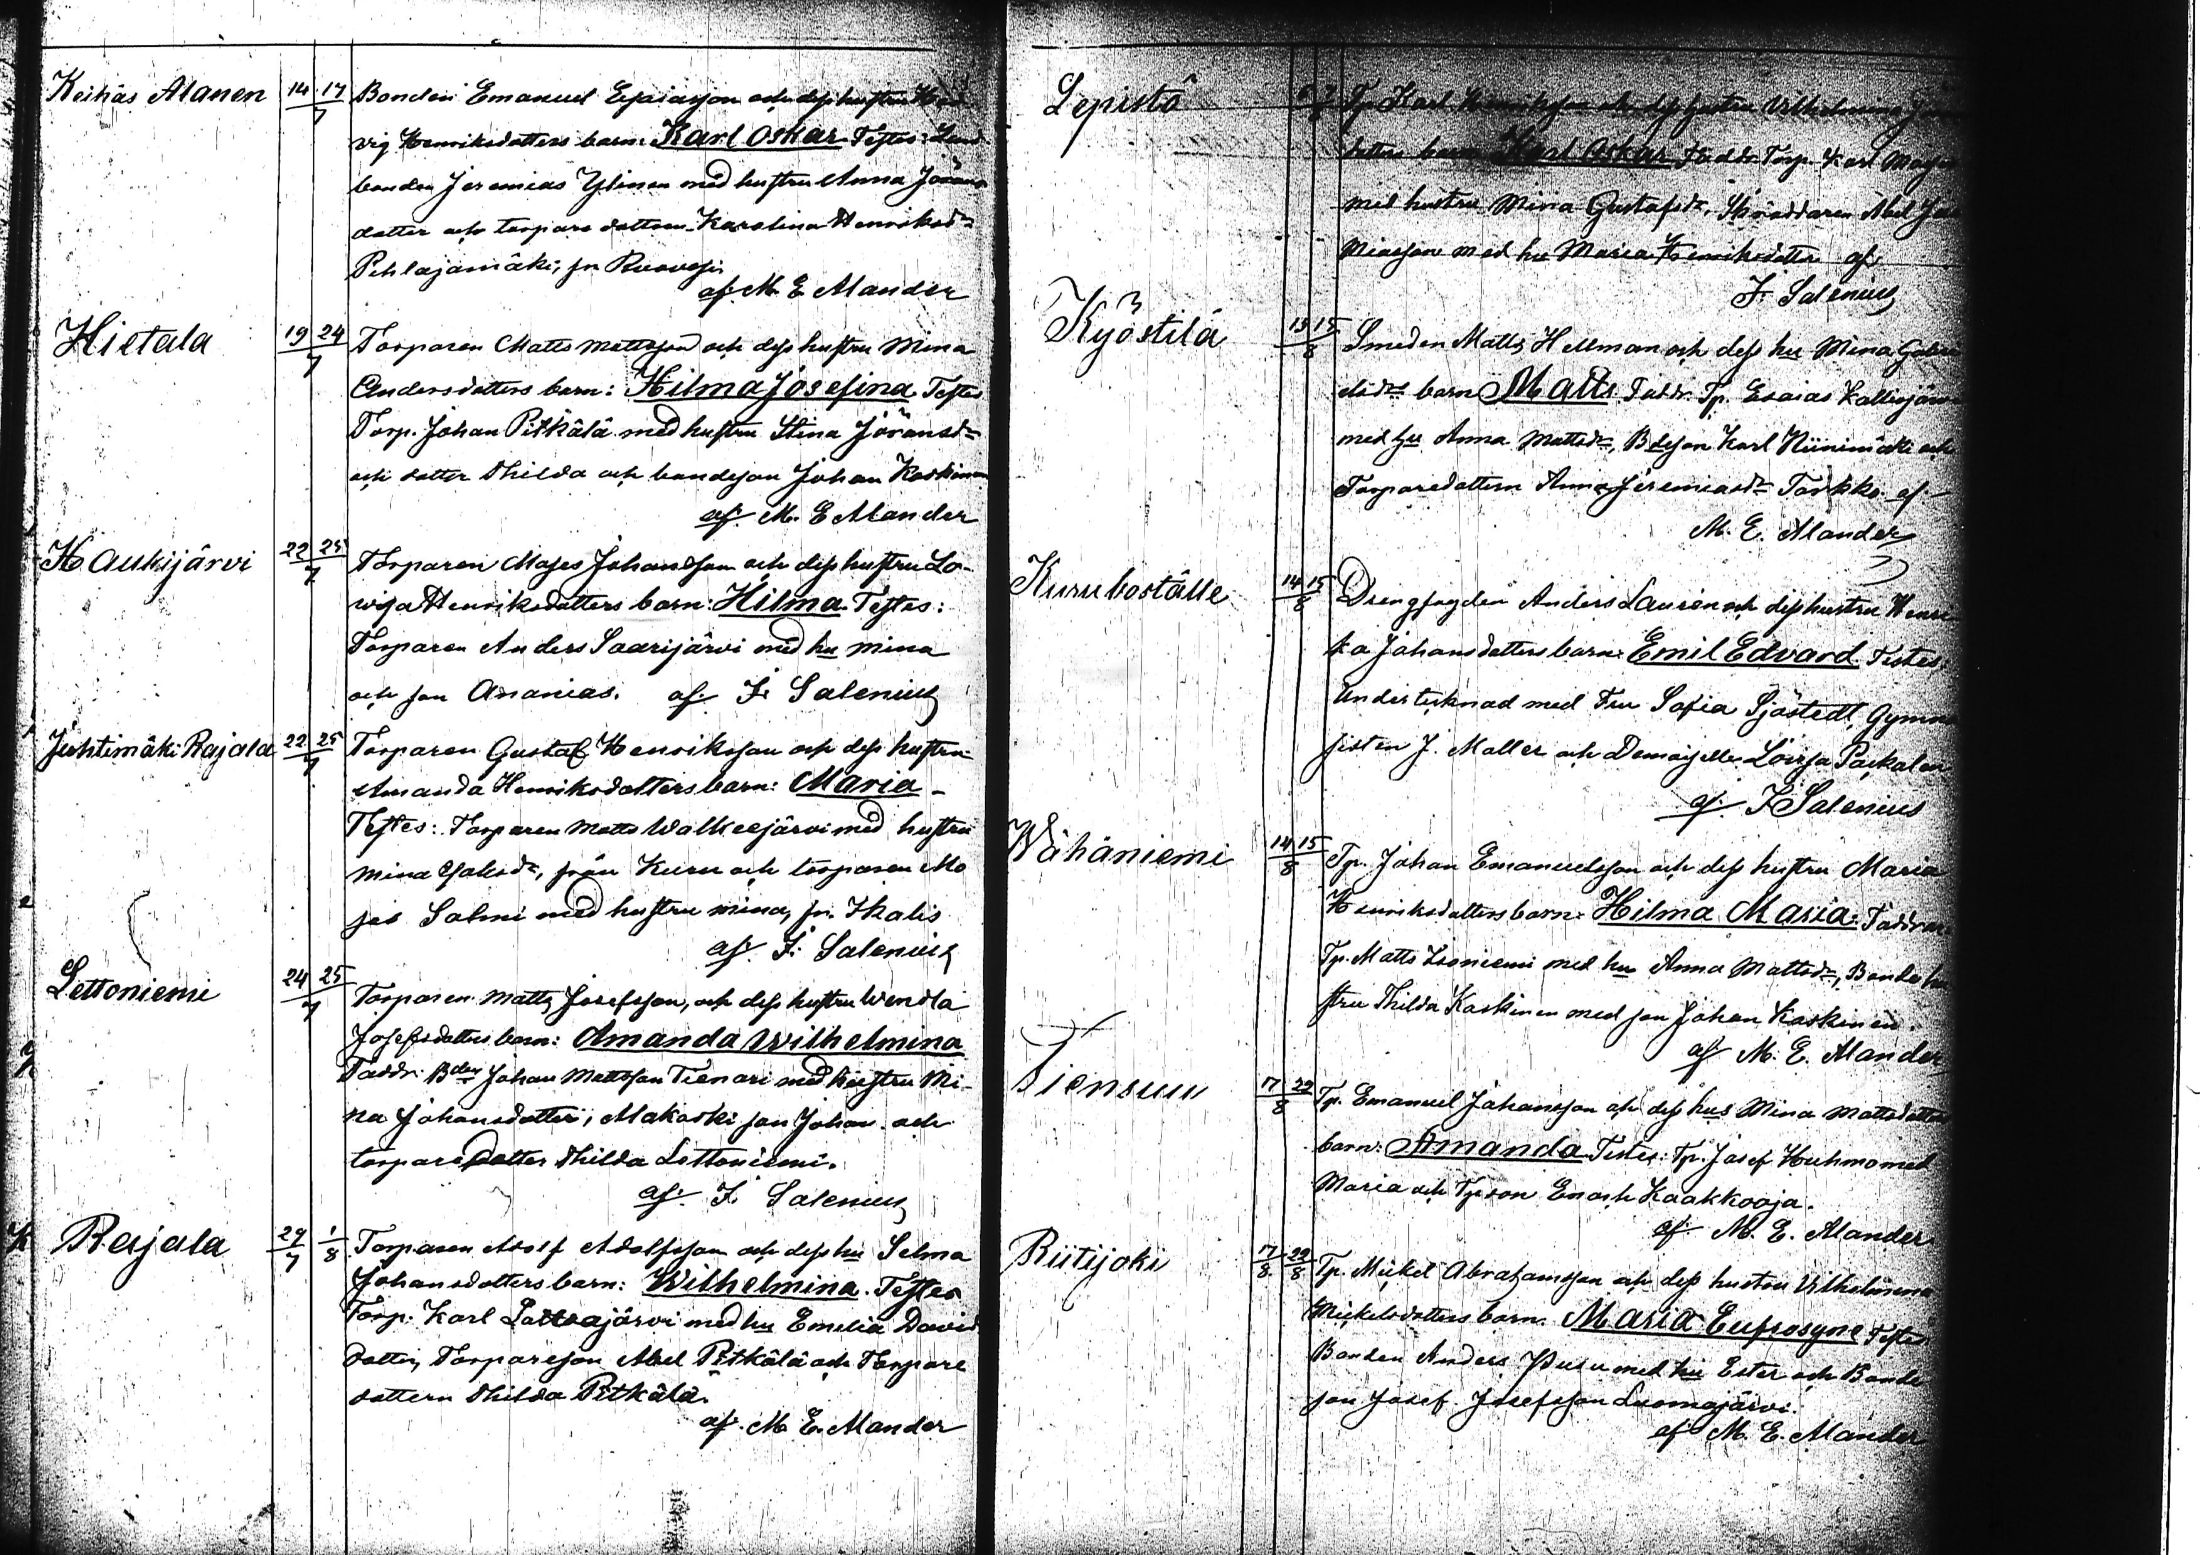 Keihäs Alanen 14 17/7 Bonden Emanuel Esaiasson och dess hustru Hed
vig Henriksdotters barn: Karl Oskar Testes: Land
bonden Jeremias Ylinen med hustru Anna Jörans
dotter och torpare dottren Karolina Henriksd:r
Pihlajamäki, fr Ruovesi.
af M. E Alander
Hietala 19 24/7 Torparen Matts Mattsson och dess hustru Mina
Andersdotters barn: Hilma Josefina Testes
Torp. Johan Pitkälä med hustru Stina Jöransd:r
och dotter Thilda och bondeson Johan Koskinen
af. M. E Alander
Haukijärvi 22 25/7 Torparen Moses Johansson och dess hustru Lo-
wisa Henriksdotters barn: Hilma. Testes:
Torparen Anders Saarijärvi med hu Mina
och son Ananias. af. F. Salenius
Juhtimäki Rajala 22 25/7 Torparen Gustaf Henriksson och dess hustru
Amanda Henriksdotters barn: Maria -
Testes: Torparen Matts Walkeejärvi med hustru
Mina från Kuru och torparen Mo
ses Salmi med hustru Mina, fr. Ikalis
af F. Salenius
Lettoniemi 24 25/7 Torparen Matts Josefsson, och dess hustru Wendla
Josefsdotters barn: Amanda Wilhelmina
Faddr: Bden Johan Mattsson Tienari med hustru Mi-
na Johansdotter, Makoski son Johan och
torparedotter Thilda Lettoniemi.
af. F. Salenius
Rajala 29/7 1/8 Torparen Adolf Adolfsson och dess hu Selma
Johansdotters barn: Wilhelmina. Testes
Torp. Karl Lattoajärvi med hu Emelia David
dotter, Torpareson Abel Pitkälä och Torpare
dottern Thilda Pitkälä.
af. M. E. Alander
Lepistö Tp. Karl Henriksson och dess hustru Vilhelmina
dotters barn Karl Oskar Faddr. Torp. Karl
med hustru Mina Gustafsd:r, Skräddaren Abel Jere
miasson med hu Maria Henriksdotter af.
F. Salenius
Kyöstilä 13 15/8 Smeden Matts Hellman och dess hu Mina Gabri
elsd:rs barn Matts Faddr. Tp. Esaias Kalliojärvi
med hu Anna Mattsd:r, Bdeson Karl Niinimäki och
Torparedottern Anna Jeremiasd:r Tarkko. af
M. E. Alander
Kuruboställe 14 15/8 Drengfogden Anders Lauren och dess hustru Henri
ka Johansdotters barn: Emil Edvard Testes:
Undertecknad med Fru Sofia Sjöstedt, Gymna
sisten J. Moller och Demoiselle Lovisa
af. F Salenius
Wähäniemi 14 15/8 Tp. Johan Emanuelsson och dess hustru Maria
Henriksdotters barn: Hilma Maria: Faddrar
Tp. Matts Isoniemi med hu Anna Mattsd:r, Bonde hu
stru Thilda Koskinen med son Johan Koskinen.
af M. E. Alander
Tiensuu 17 22/8 Tp. Emanuel Johansson och dess hus Mina Mattsdotters
barn: Amanda Testes: Tp. Josef Huhmo med
Maria och Tpson Enoch Kaakkooja.
af. M. E. Alander
Riitijoki 17/8 22/8 Tp. Mickel Abrahamsson och dess hustru Vilhelmina
Mickelsdotters barn. Maria Eufrosyne Testes
Bonden Anders Pusu med hu Ester och Bonde
son Josef Josefsson Luomajärvi.
af M. E. Alander